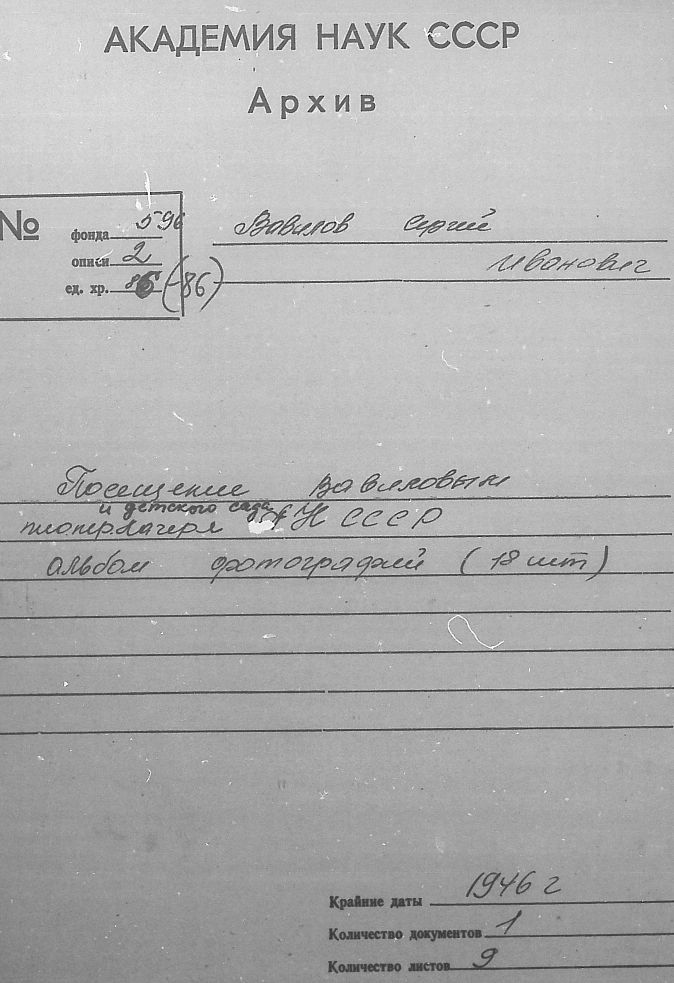 АКАДЕМИЯ НАУК СССР
Архив
№
фонда 596
описи 2
ед. хр. (-86)
Вавилов Сергей
Иванович
Посещение Вавиловым
и детского сада
пионерлагеря АН СССР
альбом фотографий (18 шт)
Крайние даты 1946 г
Количество документов 1
Количество листов 9